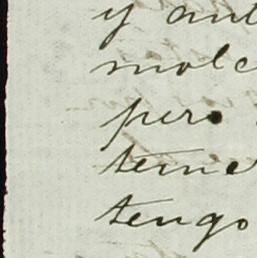 y ant
mole
pero
teme
tengo